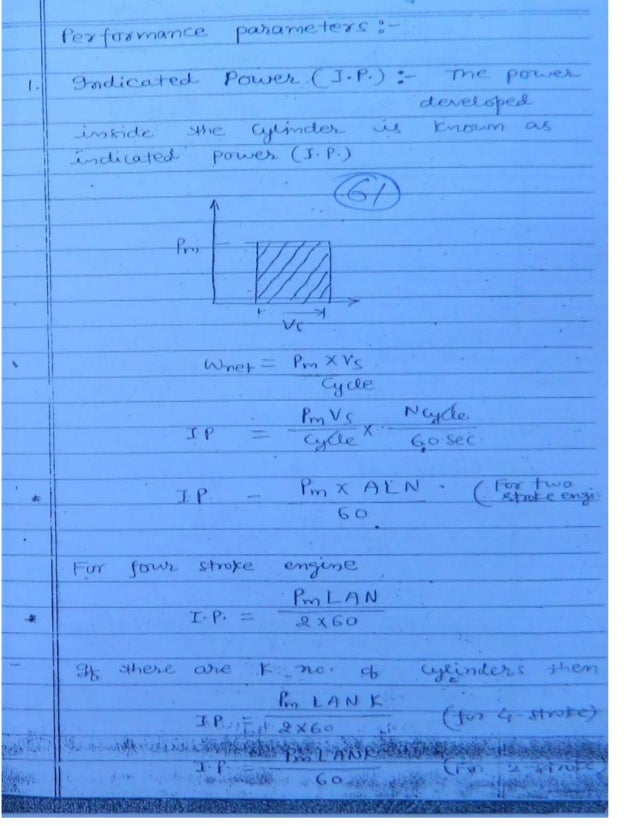 Performance parameters :-
1. Indicated Power (I.P.) :- The power
developed
inside the cylinder is known as
indicated power (I.P.)
61
Pm
Vs
Wnet = Pm X Vs / Cycle
IP = Pm Vs / Cycle X N cycle / 60 sec
* I.P. = Pm X ALN / 60 (For two
stroke engi
For four stroke engine
* I.P. = Pm LAN / 2 X 60
If there are K no. of cylinders then
I.P. = Pm LANK / 2 X 60 (for 4-stroke)
I.P. = Pm LANK / 60 (for 2 stroke)